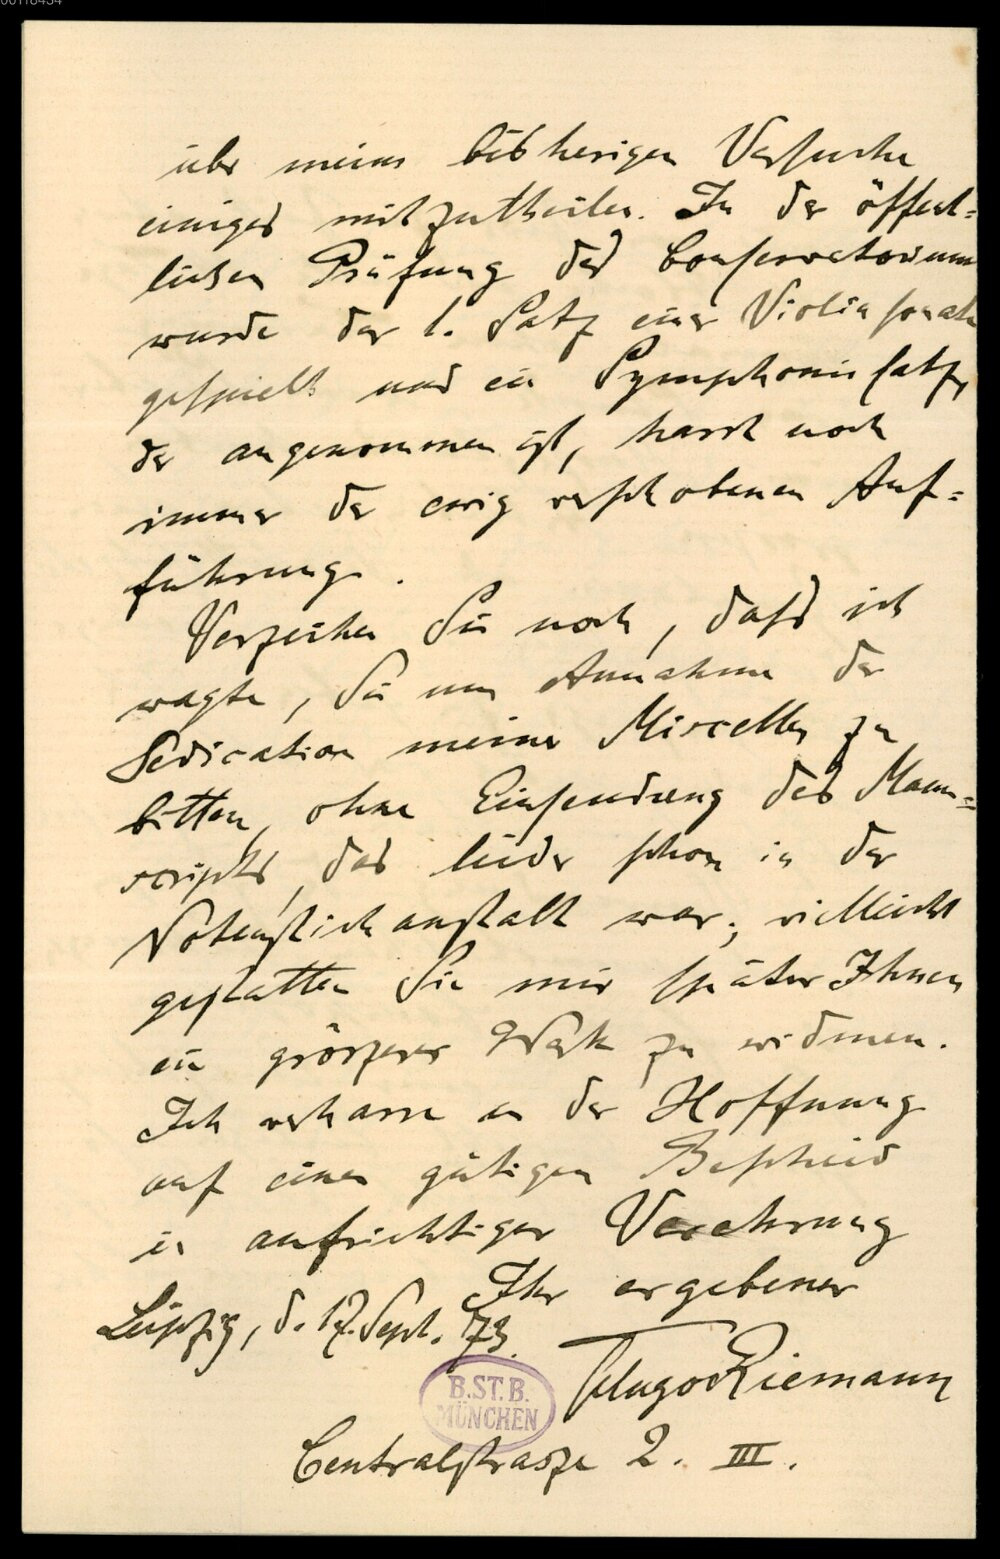 00118454
über meine bisherigen Versuche
einiges mitzutheilen. In der öffent=
lichen Prüfung des Conservatoriums
wurde der 1. Satz einer Violinsonate
gespielt und ein Symphoniesatz,
der angenommen ist, harrt noch
immer der ewig verschobenen Auf=
führung.
Verzeihen Sie noch, daß ich
wagte, Sie um Annahme der
Dedication meiner Miscellen zu
bitten, ohne Einsendung des Manu=
scripts, das leider schon in der
Notenstichanstalt war; vielleicht
gestatten Sie mir später Ihnen
ein grösseres Werk zu widmen.
Ich verharre in der Hoffnung
auf einen gütigen Bescheid
in aufrichtiger Verehrung
Ihr ergebener
Leipzig, d. 17. Sept. 73.
Hugo Riemann
B.ST.B.
MÜNCHEN
Centralstrasse 2. III.